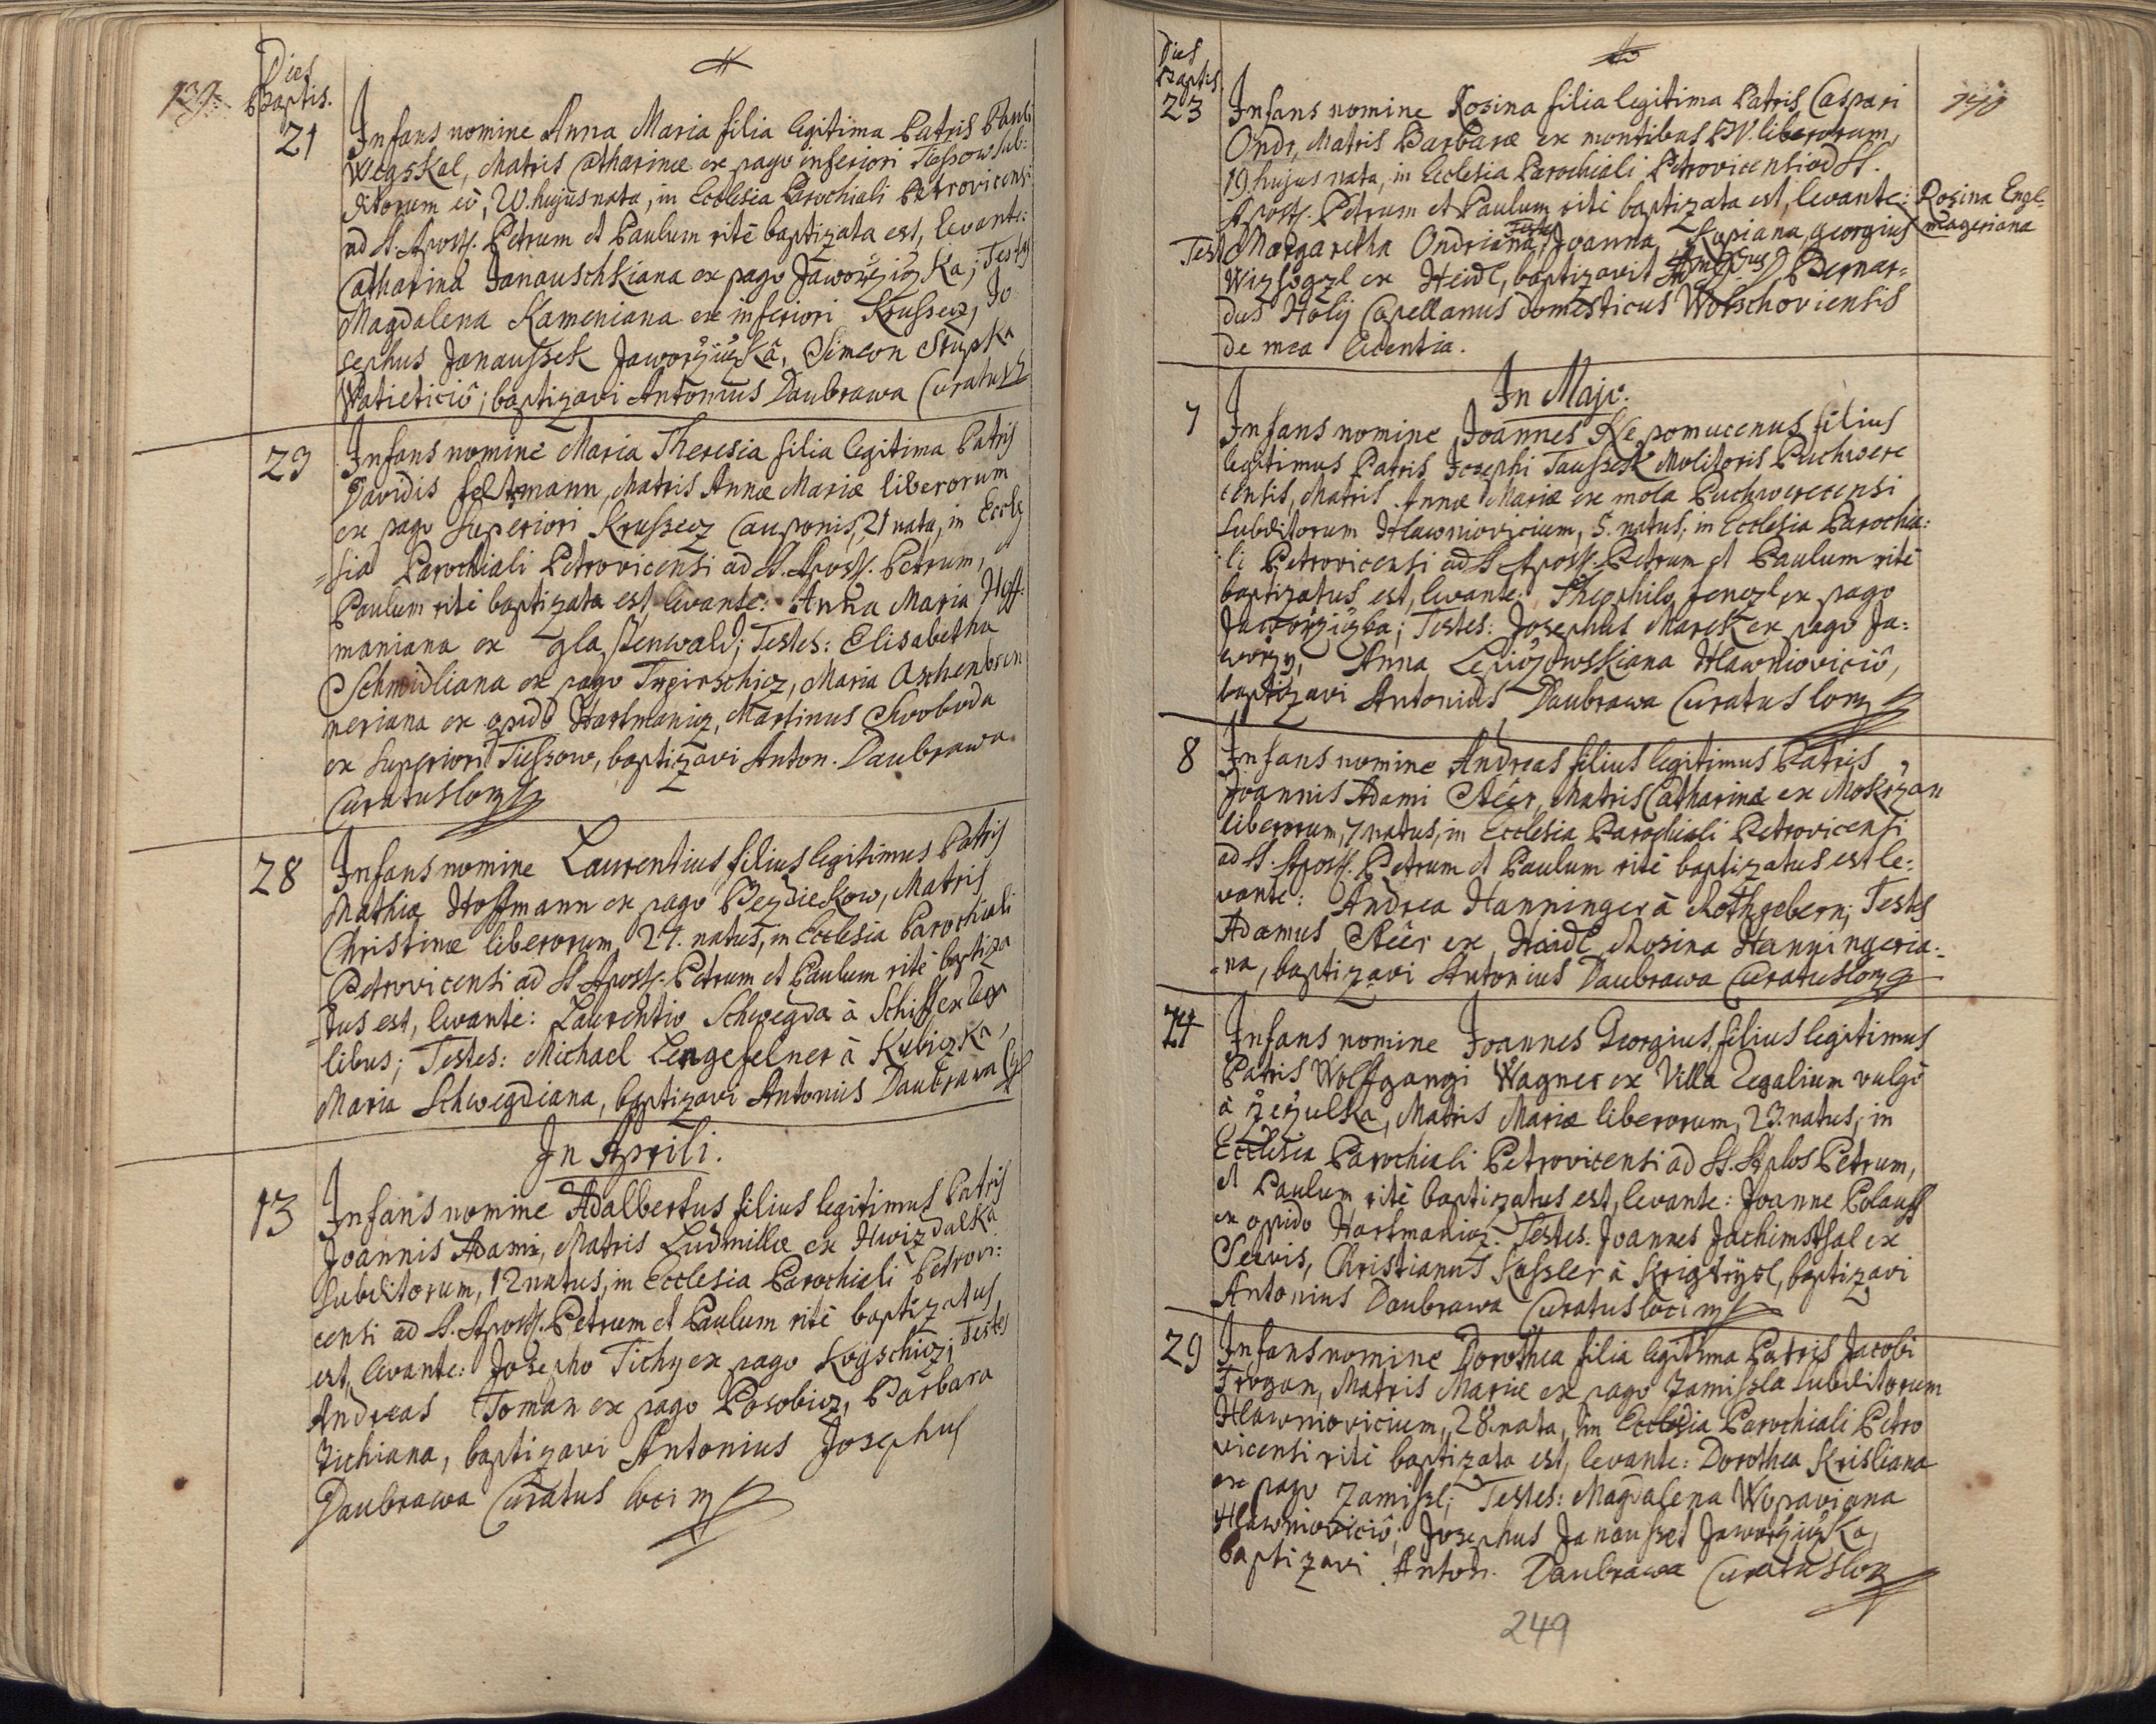 139.
Dies
Baptis.
21
Infans nomine Anna Maria filia legitima Patris Pauli
Wegskal, Matris Catharinæ ex pago inferiori Tiessow sub:
ditorum eô, 20. hujus nata, in Ecclesia Parochiali Petrovicensi
ad S. Aposts. Petrum et Paulum ritè baptizata est, levante:
Catharina Janauschkiana ex pago Jaworziczka; Testes
Magdalena Kameniana ex inferiori Krussecz, Jo
sephus Janaussek Jaworziczkâ, Simeon Stupka
Watieticiô; baptizavi Antonius Daubrawa Curatus
23
Infans nomine Maria Theresia filia legitima Patris
Davidis Feltmann, Matris Annæ Mariæ liberorum
ex pago Superiori Krussecz Cauponis, 21 nata, in Eccle
=sia Parochiali Petrovicensi ad S. Aposts. Petrum,
Paulum ritè baptizata est, levante: Anna Maria Hoff:
maniana ex Glasterwald; Testes: Elisabetha
Schmidliana ex pago Tweirschicz, Maria Aschenbren
neriana ex opido Hartmanicz, Martinus Swoboda
ex Superiori Tiessow, baptizavi Anton. Daubrawa
Curatus loci
28
Infans nomine Laurentius filius legitimus Patris
Mathiæ Hoffmann ex pago Bezdiekow, Matris
Christinæ liberorum, 27. natus, in Ecclesia Parochiali
Petrovicensi ad S. Aposts. Petrum et Paulum ritè baptiza
=tus est, levante: Laurentio Schwegda à Schiffer
libus; Testes: Michael Lengefelner à Kubiczka,
Maria Schwegdiana, baptizavi Antonius Daubrawa
In Aprili.
13
Infans nomine Adalbertus filius legitimus Patris
Joannis Adami, Matris Ludmillæ ex Hwizdalka
Subditorum, 12 natus, in Ecclesia Parochiali Petrovi:
censi ad S. Aposts. Petrum et Paulum ritè baptizatus
est, levante: Josepho Tichy ex pago Kogschicz; Testes
Andreas Toman ex pago Posobicz, Barbara
Tichiana, baptizavi Antonius Josephus
Daubrawa Curatus loci
Dies
Baptis
23
140
Infans nomine Rosina filia legitima Patris Caspari
Ondr, Matris Barbaræ ex montibus liberorum,
19 hujus nata, in Ecclesia Parochiali Petrovicensi ad S.
Aposts. Petrum et Paulum ritè baptizata est, levante: Rosina Engl=
Margaretha Ondriana, Joanna Kopiana, Georgius meageriana
Wizhogzl ex Heidl, baptizavit Bernar=
dus Holy Capellanus domesticus Wolschoviensis
de mea licentia.
In Majo.
7
Infans nomine Joannes Nepomucenus filius
legitimus Patris Josephi Taussek Molitoris Puchwere
censis, Matris Annæ Mariæ ex mola Puchwerecensi
Subditorum Hlawniovicium, 5. natus, in Ecclesia Parochia:
li Petrovicensi ad S Aposts. Petrum et Paulum ritè
baptizatus est, levante: Theophilo Fenezl ex pago
Jaworziczka; Testes: Josephus Marek ex pago Ja:
worzy, Anna Lepiczowskiana Hlawnioviciô,
baptizavi Antonius Daubrawa Curatus loci
8
Infans nomine Andreas filius legitimus Patris
Joannis Adami Stèer, Matris Catharinæ ex Mokrzan
liberorum, 7 natus, in Ecclesia Parochiali Petrovicensi
ad S. Aposts. Petrum et Paulum ritè baptizatus est le:
vante: Andrea Hanninger à Rothgebern; Testes
Adamus Stèer ex Haidl, Rosina Hanningeria=
=na, baptizavi Antonius Daubrawa Curatus loci
24
Infans nomine Joannes Georgius, filius legitimus
Patris Wolffgangi Wagner ex Villa Zegalium vulgò
à Zezulka, Matris Mariæ liberorum, 23. natus, in
Ecclesia Parochiali Petrovicensi ad S. Aplos Petrum,
et Paulum ritè baptizatus est, levante: Joanne Polauff
ex opido Hartmanicz. Testes: Joannes Jachimsthal ex
Servis, Christianus Kassler à Krigstrysl, baptizavi
Antonius Daubrawa Curatus loci
29
Infans nomine Dorothea filia legitima Patris Jacobi
Trogan, Matris Mariæ ex pago Zamissla Subditorum
Hlawniovicium, 28. nata, in Ecclesia Parochiali Petro
vicensi ritè baptizata est, levante: Dorothea Krisliana
ex pago Zamissl; Testes: Magdalena Woraviana
Hlawnioviciô; Josephus Janausset Jaworziczka,
baptizavi Anton. Daubrawa Curatus loci
249